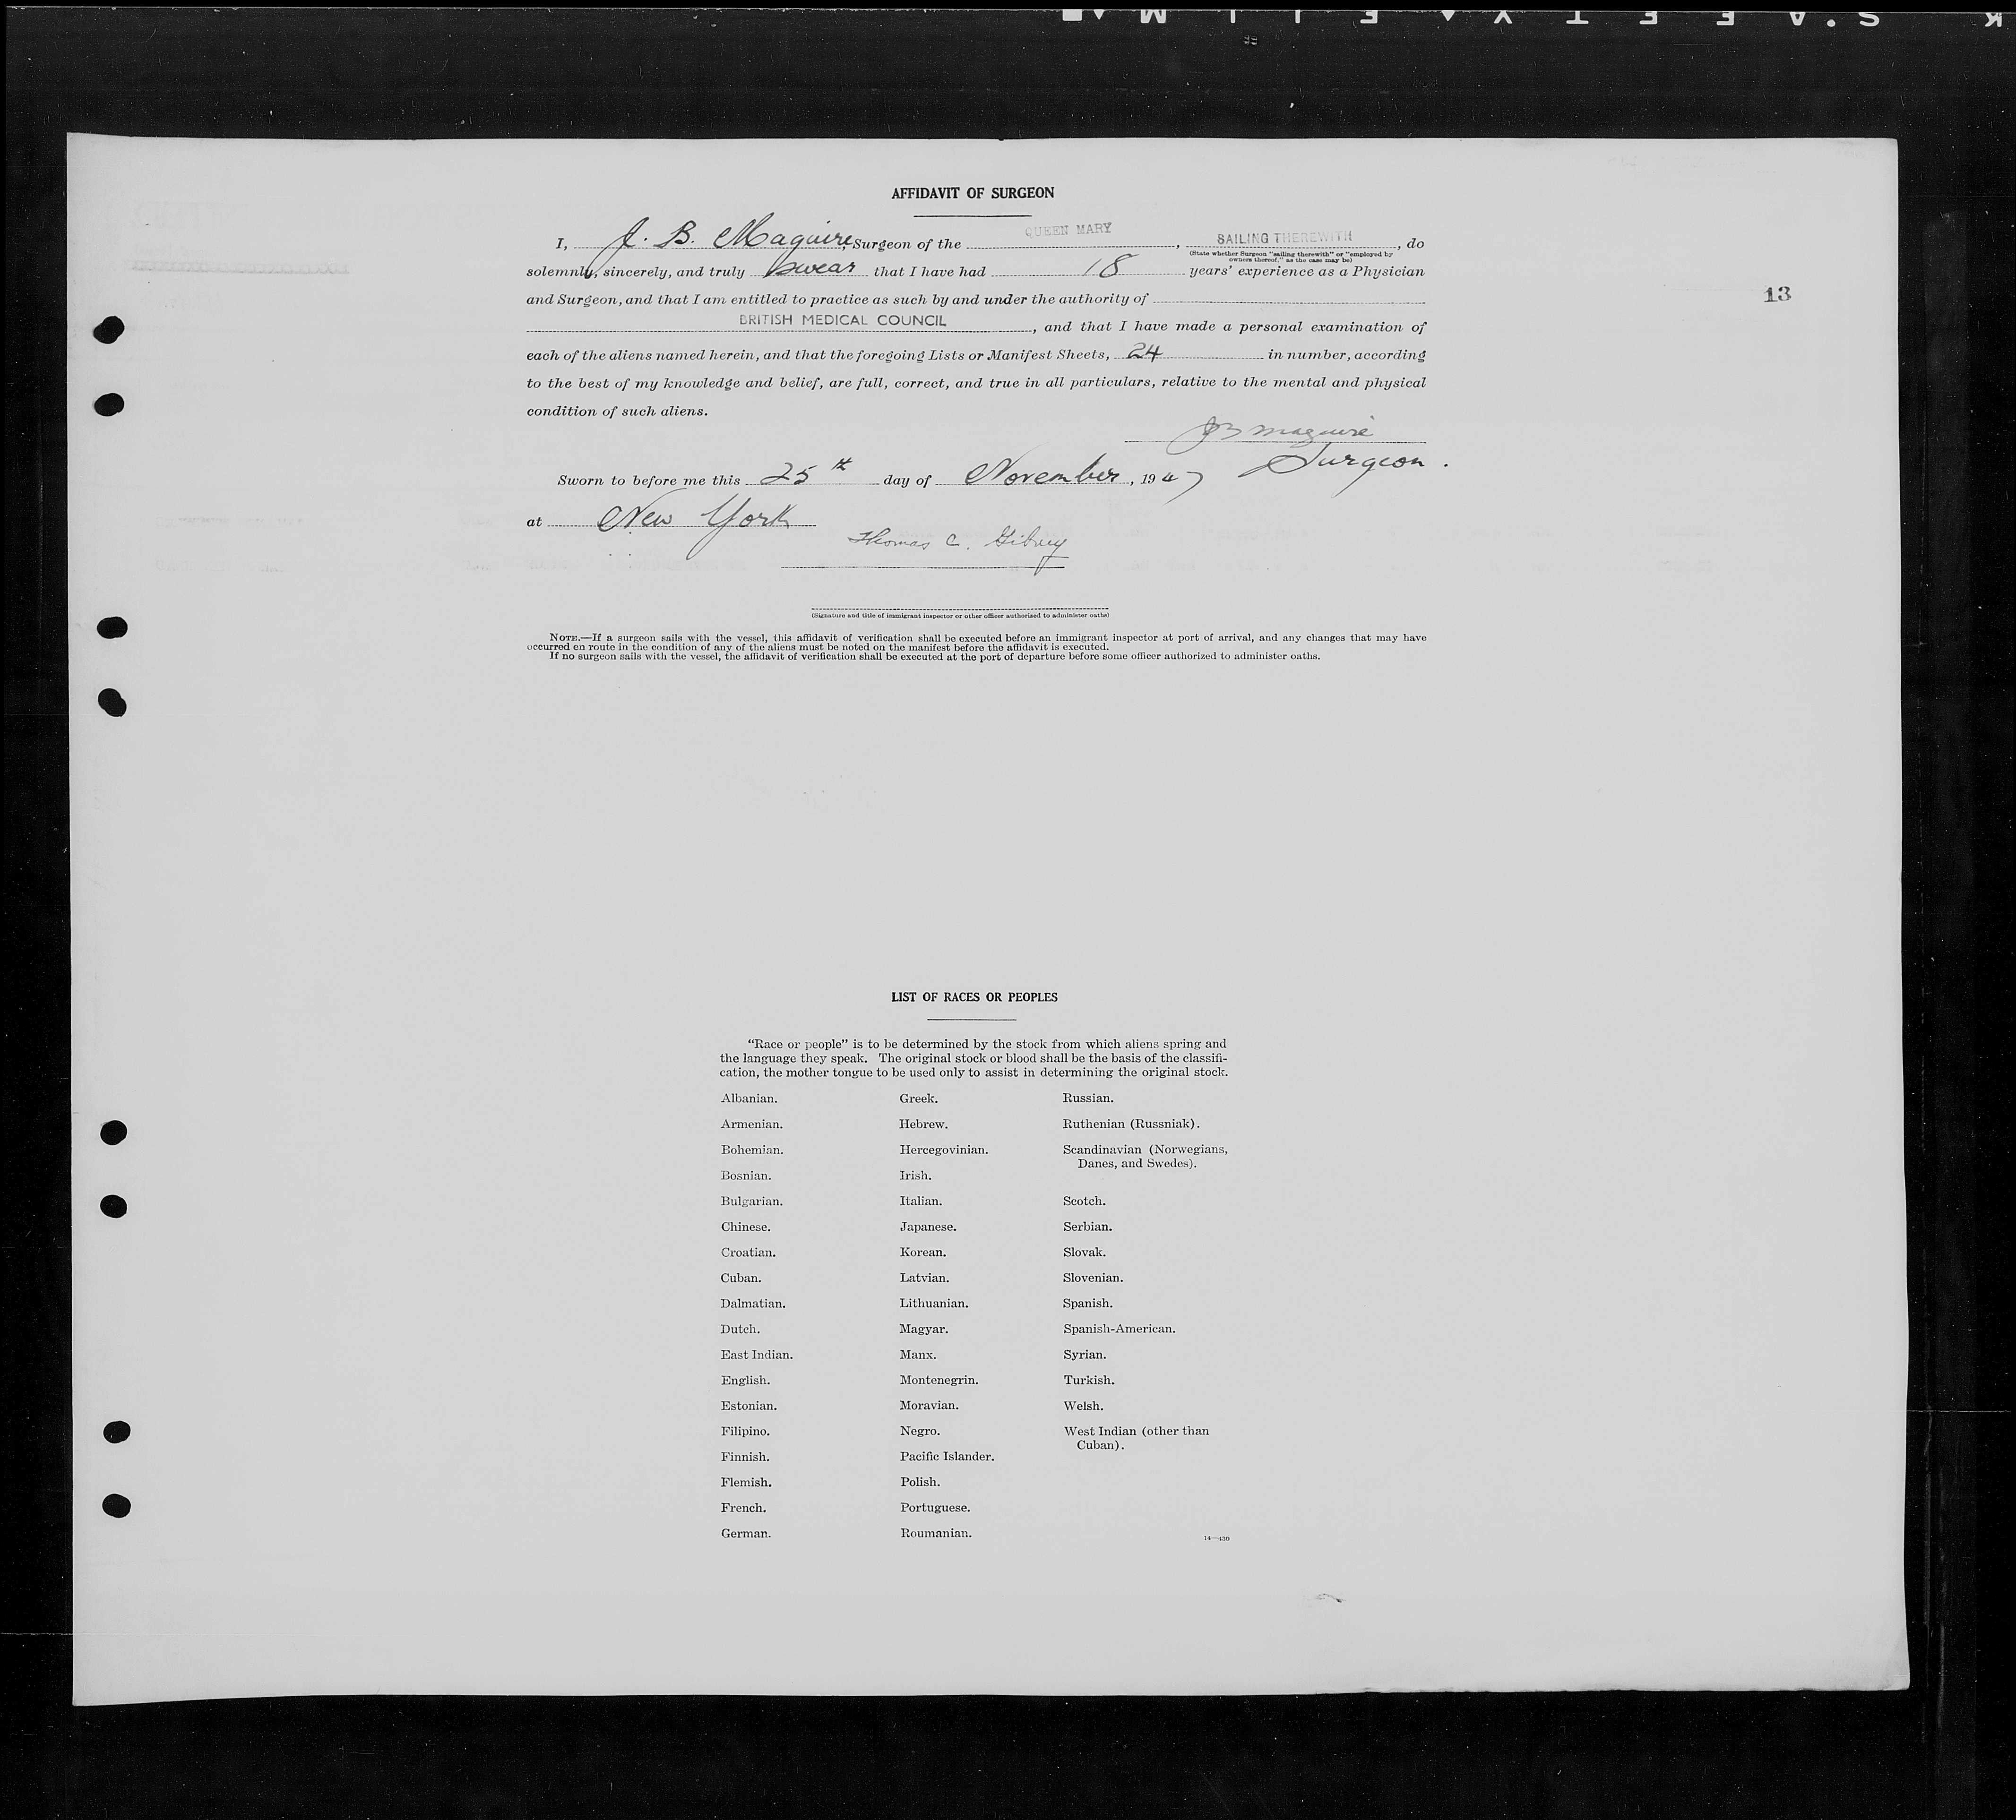 AFFIDAVIT OF SURGEON
I, J. B. Maguire, Surgeon of the QUEEN MARY, SAILING THEREWITH, do
(State whether Surgeon "sailing therewith" or "employed by
owners thereof," as the case may be)
solemnly, sincerely, and truly swear that I have had 18 years' experience as a Physician
and Surgeon, and that I am entitled to practice as such by and under the authority of
13
BRITISH MEDICAL COUNCIL, and that I have made a personal examination of
each of the aliens named herein, and that the foregoing Lists or Manifest Sheets, 24 in number, according
to the best of my knowledge and belief, are full, correct, and true in all particulars, relative to the mental and physical
condition of such aliens.
JB Maguire
Surgeon.
Sworn to before me this 25th day of November, 1947
at New York
Thomas C.
(Signature and title of immigrant inspector or other officer authorized to administer oaths)
NOTE.—If a surgeon sails with the vessel, this affidavit of verification shall be executed before an immigrant inspector at port of arrival, and any changes that may have
occurred en route in the condition of any of the aliens must be noted on the manifest before the affidavit is executed.
If no surgeon sails with the vessel, the affidavit of verification shall be executed at the port of departure before some officer authorized to administer oaths.
LIST OF RACES OR PEOPLES
"Race or people" is to be determined by the stock from which aliens spring and
the language they speak. The original stock or blood shall be the basis of the classifi-
cation, the mother tongue to be used only to assist in determining the original stock.
Albanian.
Armenian.
Bohemian.
Bosnian.
Bulgarian.
Chinese.
Croatian.
Cuban.
Dalmatian.
Dutch.
East Indian.
English.
Estonian.
Filipino.
Finnish.
Flemish.
French.
German.
Greek.
Hebrew.
Hercegovinian.
Irish.
Italian.
Japanese.
Korean.
Latvian.
Lithuanian.
Magyar.
Manx.
Montenegrin.
Moravian.
Negro.
Pacific Islander.
Polish.
Portuguese.
Roumanian.
Russian.
Ruthenian (Russniak).
Scandinavian (Norwegians,
Danes, and Swedes).
Scotch.
Serbian.
Slovak.
Slovenian.
Spanish.
Spanish-American.
Syrian.
Turkish.
Welsh.
West Indian (other than
Cuban).
14—430